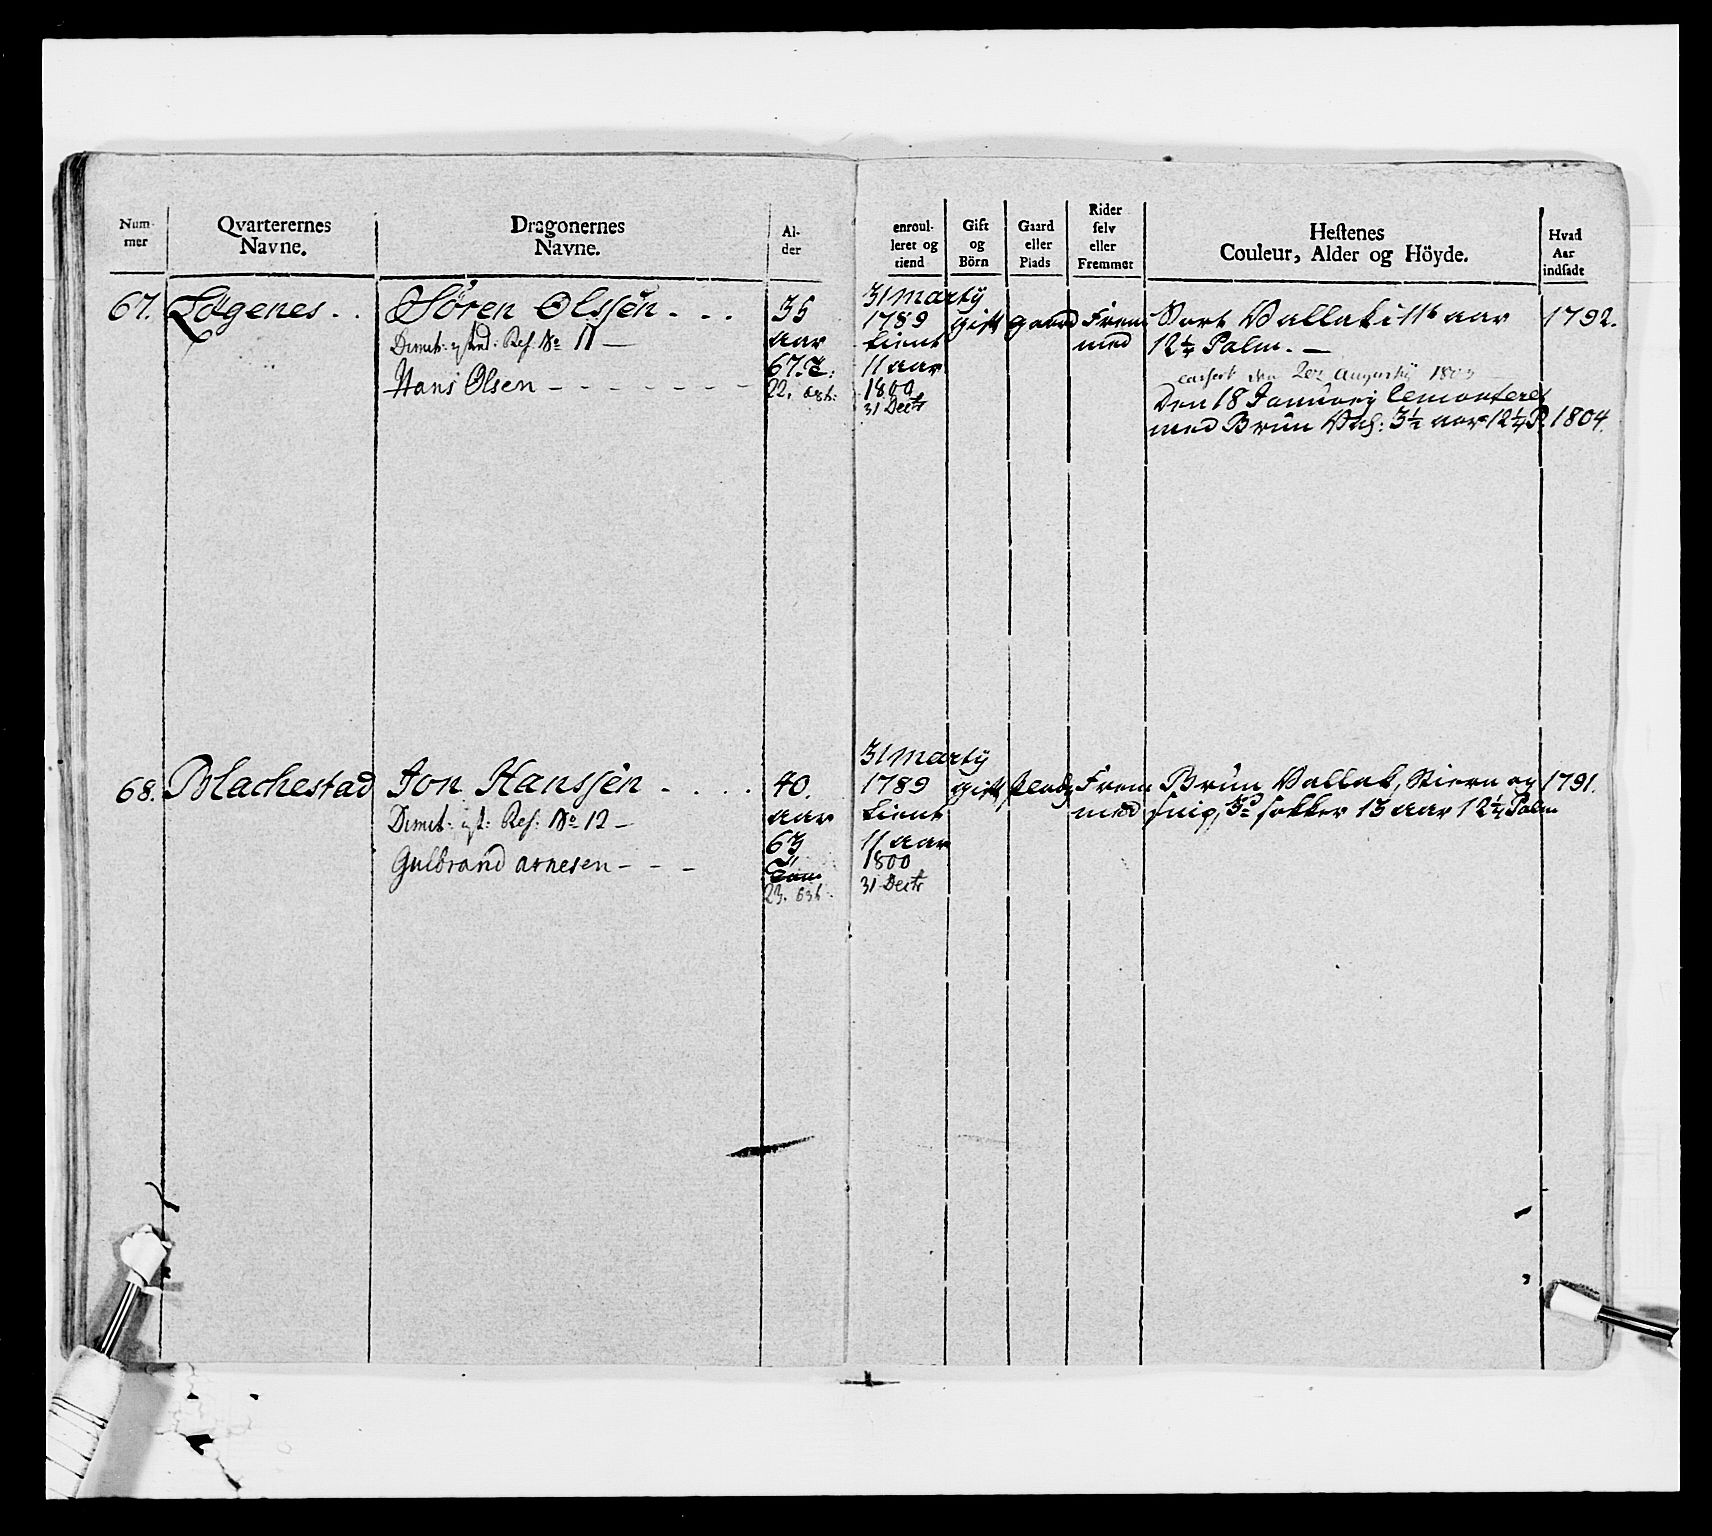 Num-
mer
Qvarterernes
Navne.
Dragonernes
Navne.
Al-
der
enroul-
leret og
tiend
Gift
og
Börn
Gaard
eller
Plads
Rider
selv
eller
Fremmet
Hestenes
Couleur, Alder og Höyde.
Hvad
Aar
indsadt
67. Løgenes . .
Sören Olssen . . .
Dimit: Res. No 11 —
Hans Olsen - - - - - - -
35
aar
67.
22.
31 Marty
1789
tient
11 aar
1800
31 Dectr
gift
gaard
Frem
med
Sort Vallak i 11te aar
12¼ Palm. —
Casseret den 20de Augusty 1803
Den 18 January Remonteret
med Brun Val: 3½ aar 12¼ P.
1792.
1804.
68. Machestad
Jon Hanssen . . . .
Dimit: Res: No 12 —
Gulbrand Arnesen - - -
40.
aar
63
23.
31 Marty
1789
tient
11 aar
1800
31 Dectr
gift
Plads
Frem
med
Brun Vallak, Stiern og
snip, sokker 13 aar 12¼ Palm
1791.